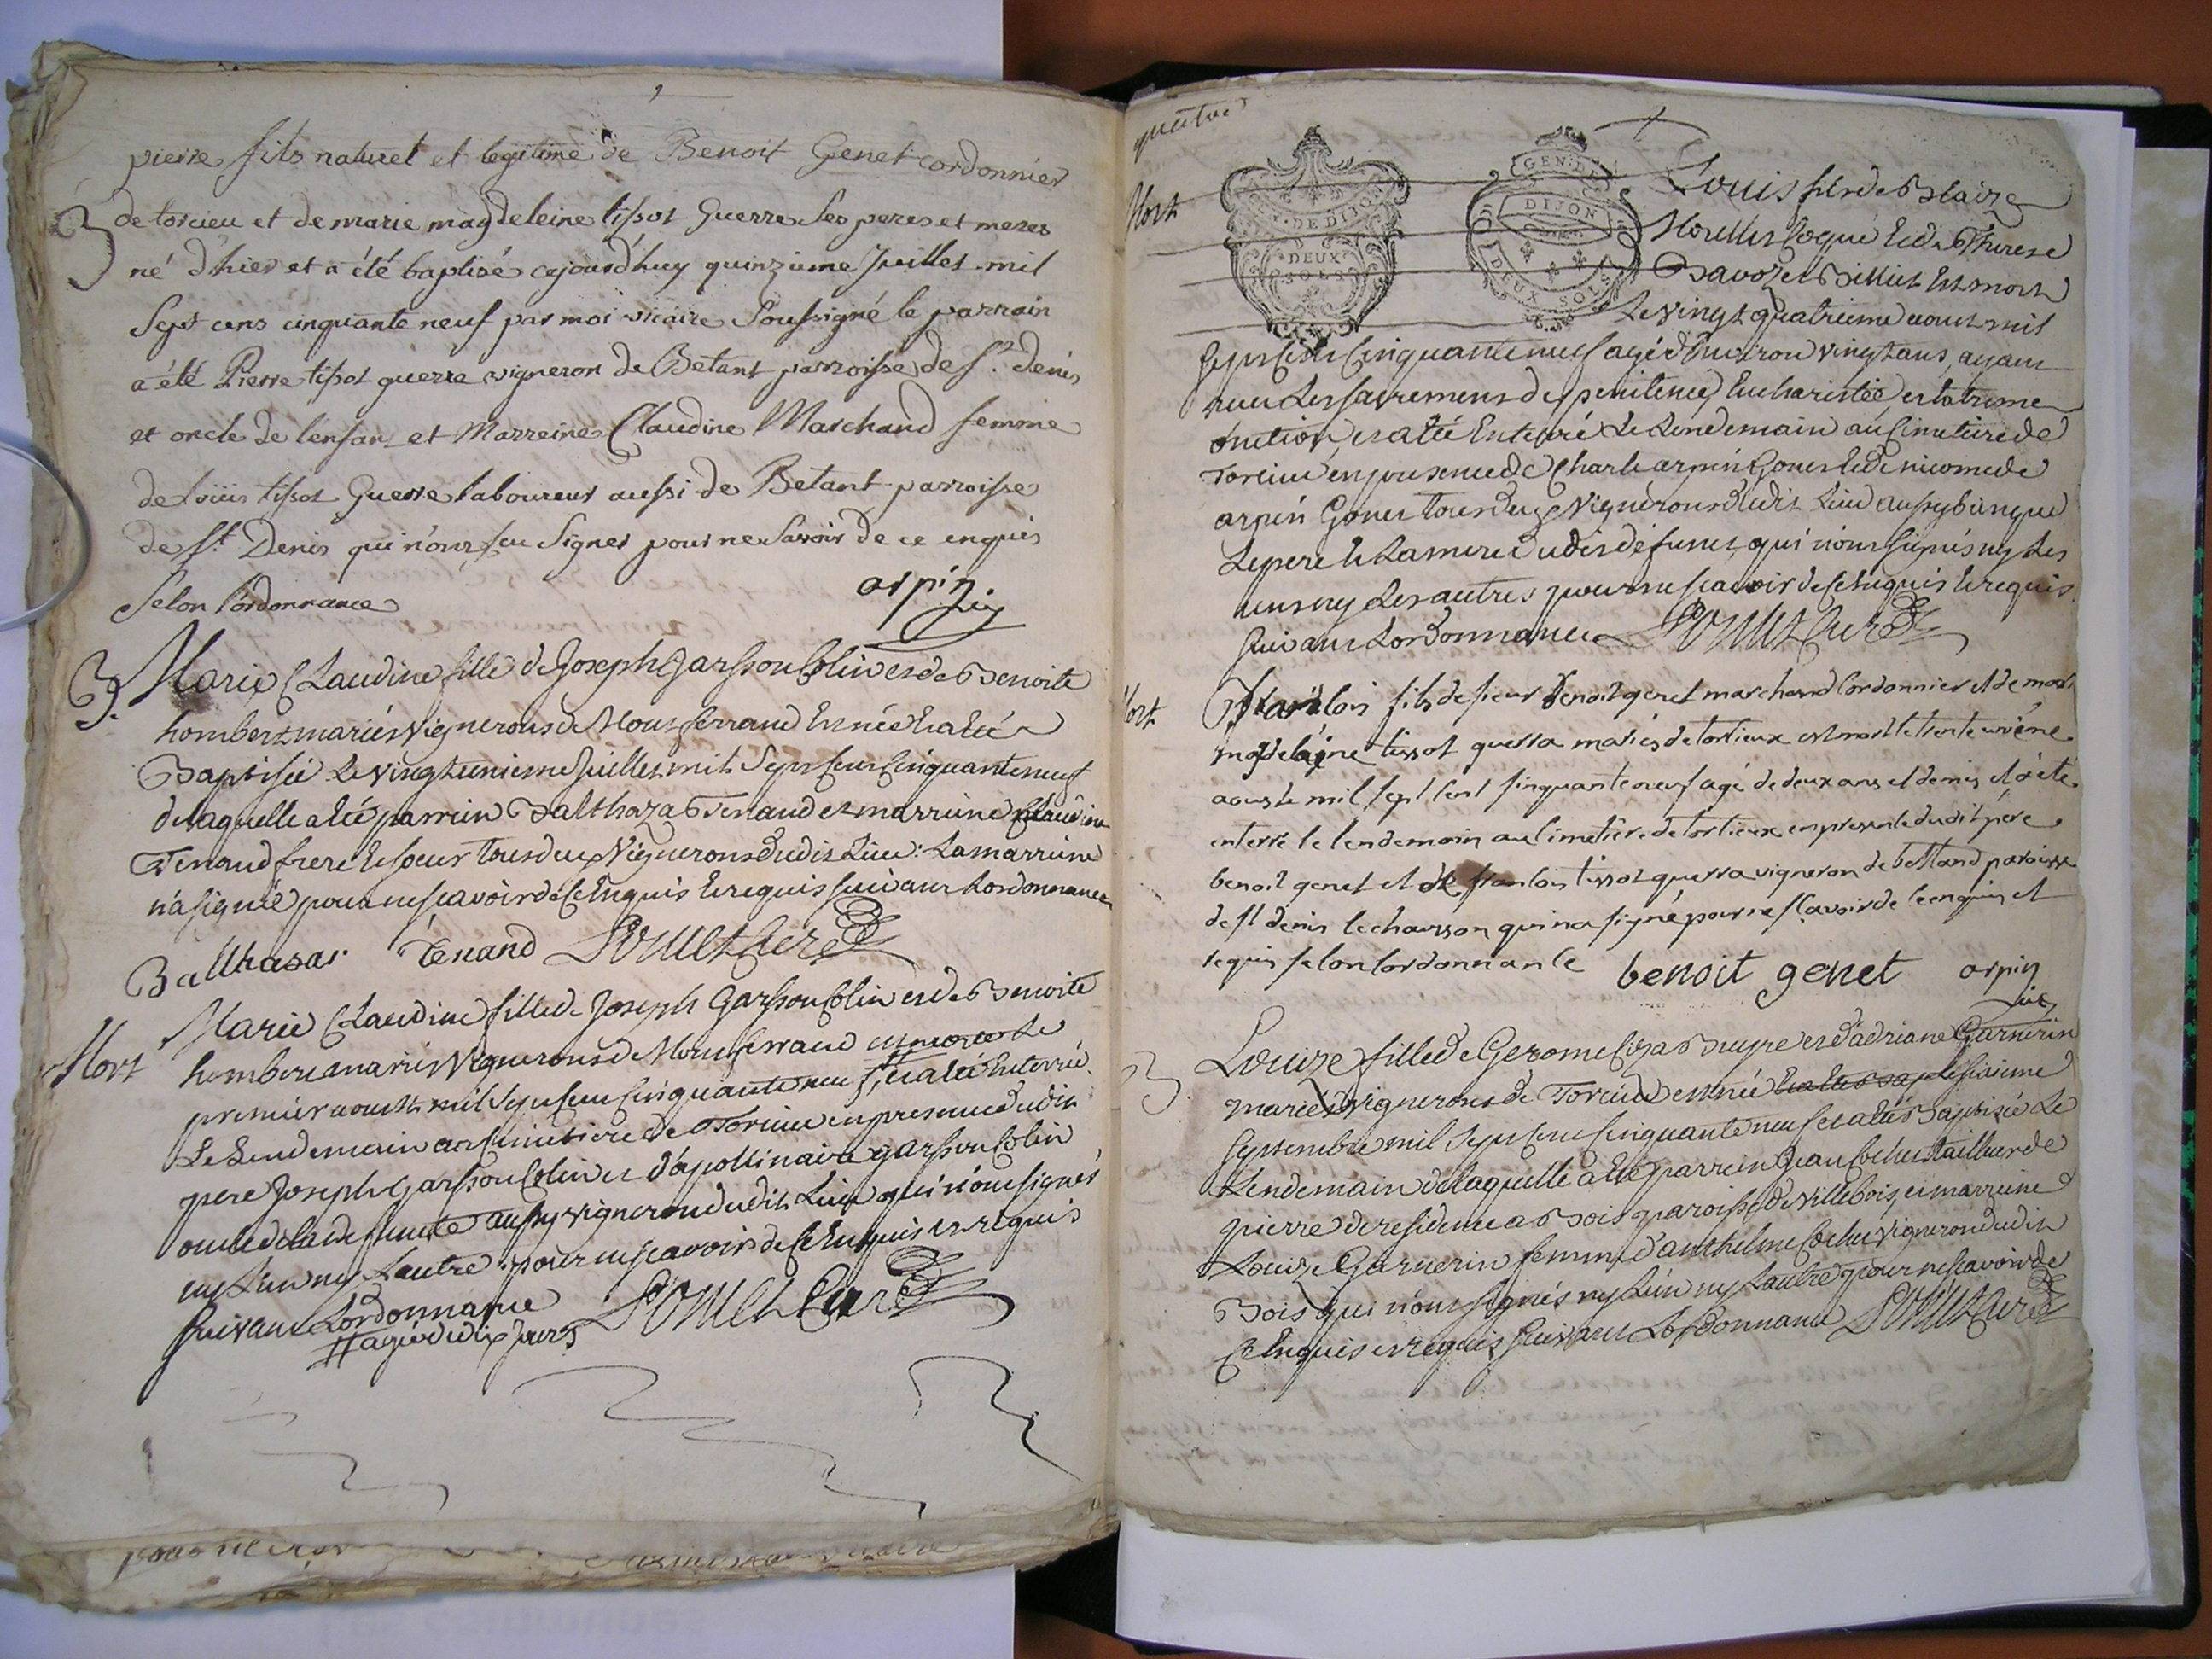 pierre fils naturel et legitime de Benoit Genet cordonnier
B de torcieu et de marie magdeleine tissot Guerre ses peres et meres
né d'hier et a été baptisé cejourd'huy quinzieme Juillet mil
Sept cens cinquante neuf par moi vicaire Soussigné le parrain
a été Pierre tissot guerre vigneron de Betant parroisse de St. denis
et oncle de lenfan et Marreine Claudine Marchand femme
de loüis tissot Guerre laboureur aussi de Betant parroisse
de St. Denis qui n'ont seu Signer pour ne Savoir de ce enquis
Selon l'ordonnance arpin vic
B. Marie Claudine fille de Joseph Garsson Colin et de Benoite
hombert mariés Vignerons de Montferrand est née et a été
Baptisée Le vingt unieme Juillet mil Sept Cent Cinquante neuf
de laquelle a été parrein Balthazar Tenand et marreine Claudine
Tenand frere et soeur tous deux Vignerons dudit Lieu: La marreine
n'a signé pour ne scavoir de ce Enquis et requis suivant Lordonnance
Balthasar Tenand Curé
Mort Marie Claudine fille de Joseph Garsson Colin et de Benoite
hombert mariés Vignerons de Montferrand est morte Le
premier aoust mil Sept Cent Cinquante neuf, et a été Enterrée
Le Lendemain au Cimetiere de Torcieu en presence dudit
pere Joseph Garsson Colin et d'apollinaire garsson Colin
oncle de la defunte aussy vigneron dudit Lieu qui n'ont signés
ny Lun ny Lautre pour ne scavoir de ce Enquis et requis
suivant Lordonnance Curé
# agée de dix jours
quatre
GEN. DE DIJON
DEUX SOLS
DIJON
DEUX SOLS
Mort Louis fils de Blaize
Morellet Coque et de Therese
Savoze Billiet est mort
Le vingt quatrieme aout mil
Sept Cent Cinquante neuf agé d'Environ vingt ans, ayant
receu Les sacremens de penitence, Eucharistie et Extreme
onction, et a été Enterré Le Lendemain au Cimetiere de
Torcieu en presence de Charle arpin Gonet et de nicomede
arpin Gonet tous deux Vignerons dudit Lieu aussy bien que
Le pere et La mere dudit defunct, qui n'ont signés ny Les
uns ny Les autres pour ne scavoir de ce Enquis et requis
suivant Lordonnance Curé
Mort francois fils de sieur benoit genet marchand cordonnier et de marie
magdelaine tissot guerra mariés de tortieux est mort le trente unieme
aouste mil sept cent sinquante neuf agé de deux ans et demis et a été
enterré le lendemain au cimetière de tortieux en presence dudit père
benoit genet et de francois tissot guerra vigneron de bettand paroisse
de st denis le chausson qui na signé pour ne sçavoir de ce enquis et
requis selon lordonnance benoit genet arpin vic
B Louize fille de Gerome et d'adriane Garnerin
mariés Vignerons de Torcieu est née et a été bap le sixieme
Septembre mil Sept Cent Cinquante neuf et a été Baptizée Le
Lendemain de laquelle a été parrein Jean Cochet tailleur de
pierre de residence a Bois paroisse de Villebois, et marreine
Louize Garnerin femme d'anthelme Cochet vigneron dudit
Bois qui n'ont signés ny Lun ny Lautre pour ne scavoir de
ce Enquis et requis suivant Lordonnance Curé